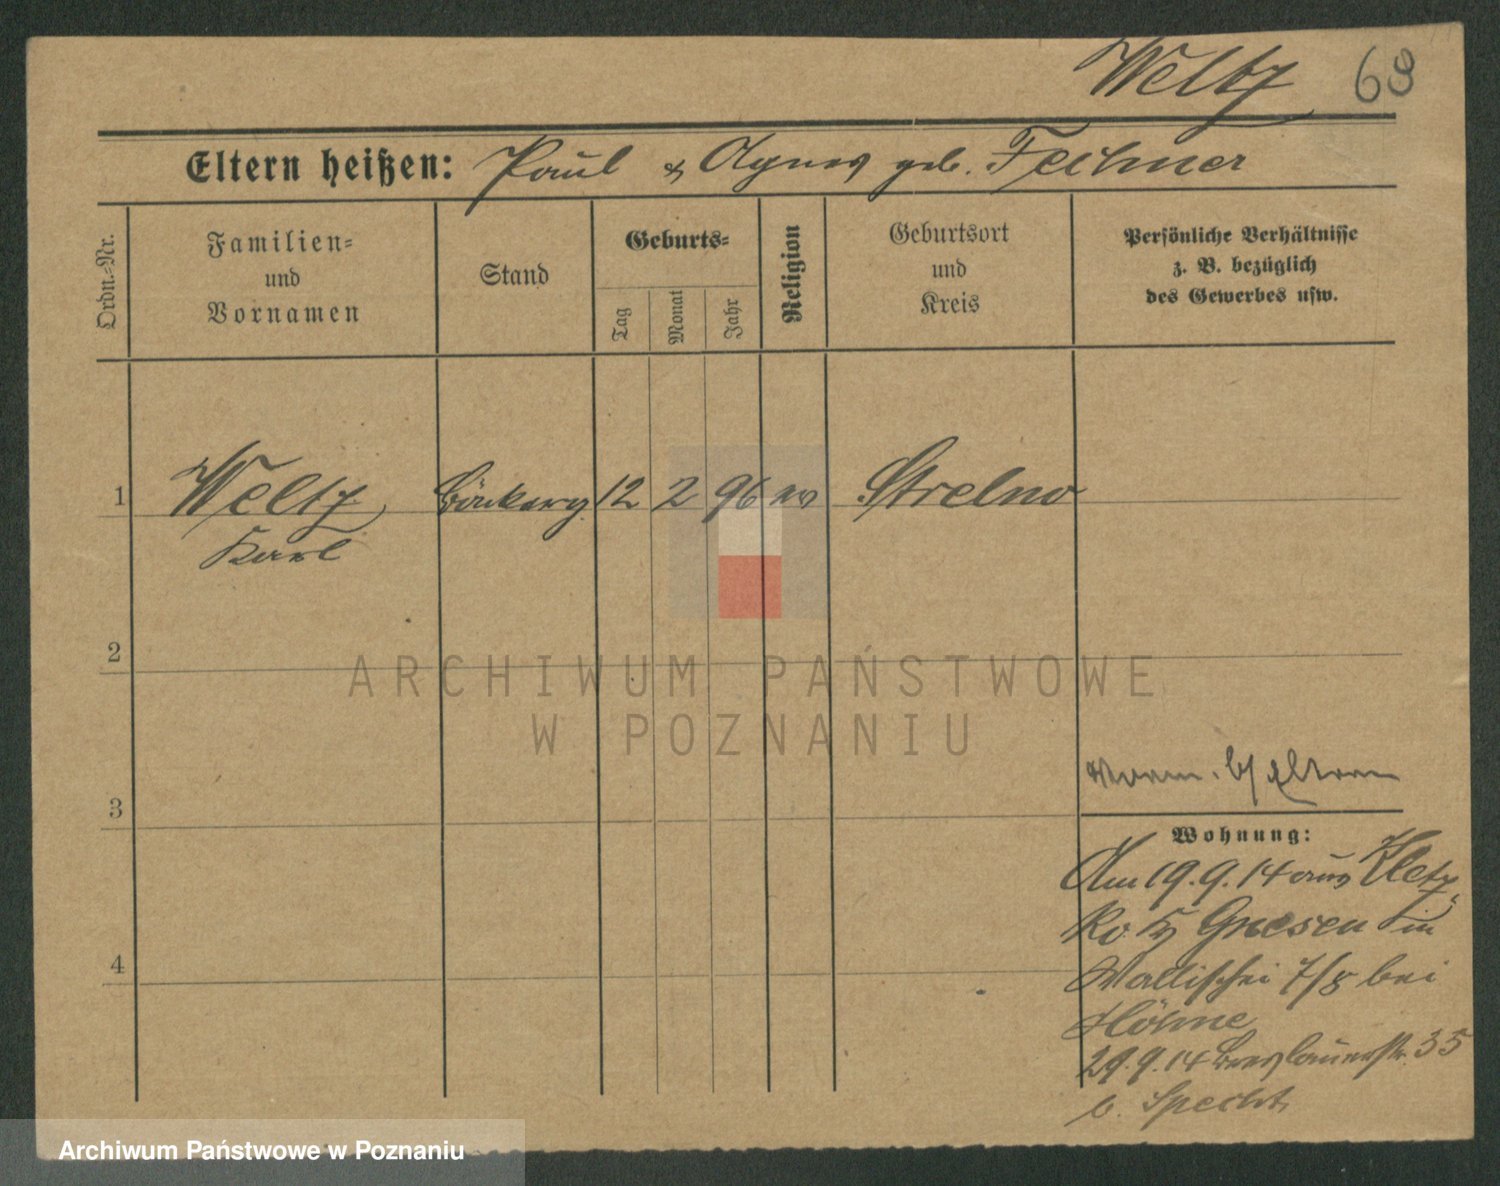 Weltz 68
Eltern heißen: Paul & Agnes geb. Fechner
Ordn.=Nr.
Familien=
und
Vornamen
Stand
Geburts=
Tag
Monat
Jahr
Religion
Geburtsort
und
Kreis
Persönliche Verhältnisse
z. B. bezüglich
des Gewerbes usw.
1 Weltz, 12 2 96 ev Strelno
Karl
2
3
4
b/ Eltern
Wohnung:
Am 19.9.14 aus Kletz
ko Kr Gnesen in
Wallischei 7/8 bei
Höhne
29.9.14 Breslauerstr. 35
b. Specht
ARCHIWUM PAŃSTWOWE
W POZNANIU
Archiwum Państwowe w Poznaniu